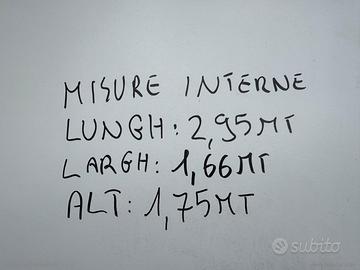 MISURE INTERNE
LUNGH: 2,95MT
LARGH: 1,66MT
ALT: 1,75MT
subito